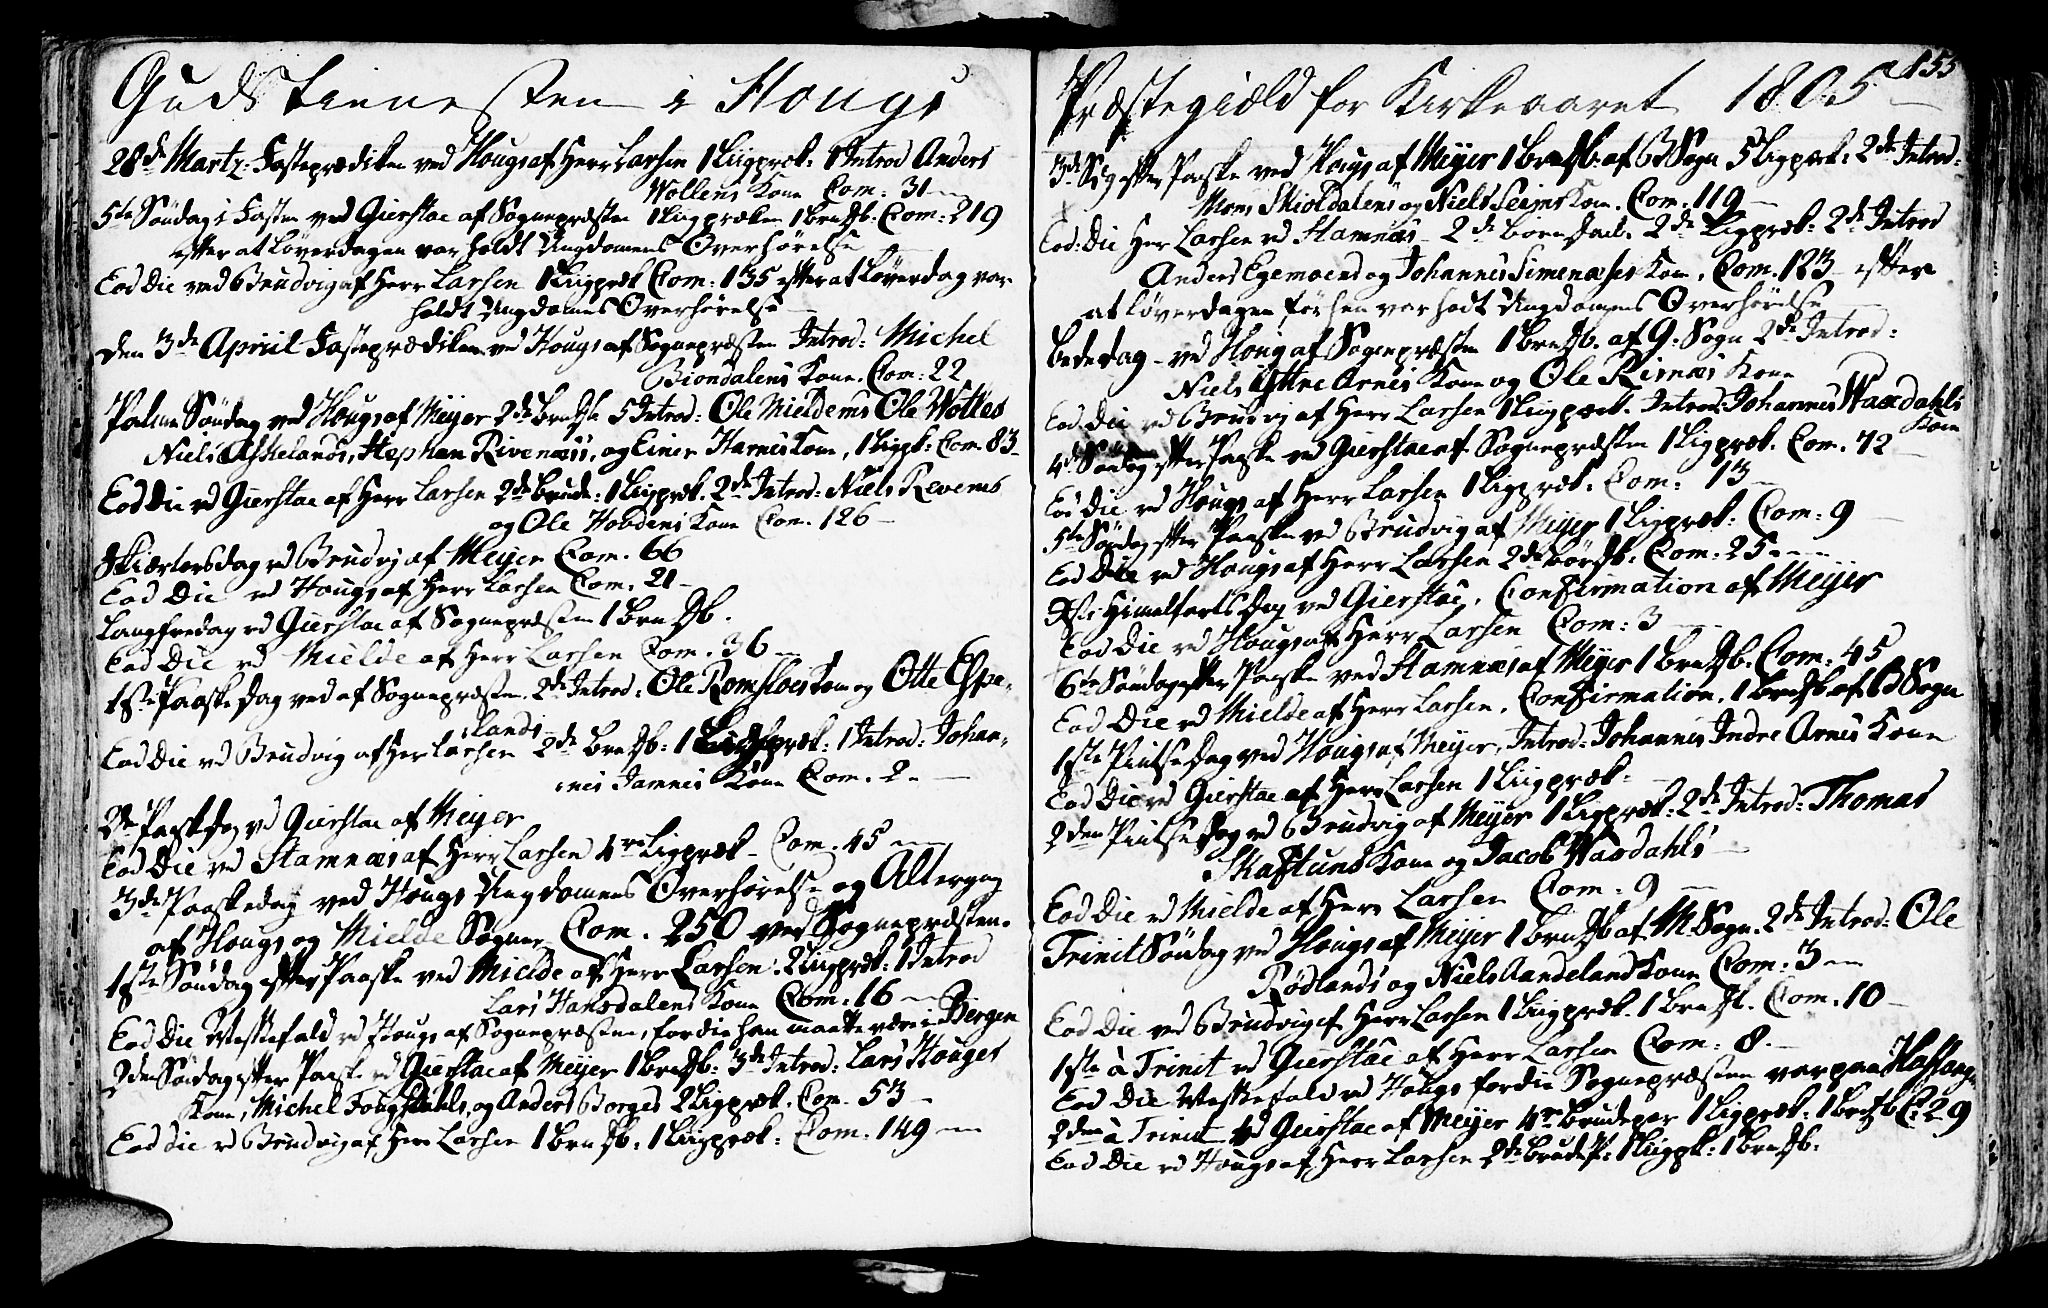 Gudstienesten i Hougs
28de Martz: Fasteprædiken ved Hougs af Herr Larsen 1 Liigpræk: 1 Introd Anders
Wollens Kone Com: 31
5te Søndag i Fasten ved Gierstae af Sognepræsten 1 Liigpræken 1 Com: 219
efter at Løverdagen var holdt Ungdomens Overhørelse
Eod Die ved Brudvig af Herr Larsen 1 Liigpræk Com: 135 efter at Løverdag var
holdt Ungdomens Overhørelse
den 3de Apriil Fasteprædiken ved Hougs af Sognepræsten Introd: Michel
Biondalens Kone. Com: 22
Palme Søndag ved Hougs af Meyer 2de 5 Introd: Ole Mieldems Ole Wolles
Niels Askelands, Stephan Rivenæss, og Einer Harnes Kone, 1 Liigpk: Com. 83
Eod Die vd Gierstae af Herr Larsen 2de Brude: 1 Liigpræk. 2de Introd: Niels Revems
og Ole Hobdens Kone Com. 126
Skiærtorsdag vd Brudvig af Meyer Com. 66
Eod Die vd Hougs af Herr Larsen Com. 21
Langfredag vd Gierstae af Sognepræsten 1
Eod Die vd Mielde af Herr Larsen Com. 36
1ste Paaske Dag ved af Sognepræsten. 2de Introd: Ole Romsloes Kone og Otte Espe-
lands
Eod Die vd Brudvig af Her Larsen 2de 1 Liigpræk: 1 Introd: Johan-
nes Jamnes Kone Com. 2.
2de Paaskedag vd Gierstae af Meyer
Eod Die ved Hamnæs af Herr Larsen 4re Liigpræk Com. 45
3de Paaskedag ved Hougs Ungdomens Overhørelse og Altergang
af Hougs og Mielde Sogner Com. 250 ved Sognepræsten.
1ste Søndag efter Paaske ved Mielde af Herr Larsen. 2 Liigpræk: 1 Introd
Lars Hansdalens Kone Com. 16
Eod Die Messefald vd Hougs af Sognepræsten, fordie han maatte være i Bergen
2den Søndag efter Paaske vd Gierstae af Meyer 1 3de Introd: Lars Houges
Kone, Michel Fougstdahls, og Anders Borges 2 Liigpræk. Com. 53
Eod Die vd Brudvig af Herr Larsen 1 1 Liigpræk: Com: 149
155
Præstegiæld for Kirkeaaret 1805
3de Søg efter Paaske ved Hougs af Meyer 1 af B Sogn 5 Ligpræk: 2de Introd:
Mons Skioldalens og Niels Seims Kone. Com. 119
Eod: Die Her Larsen vd Hamnæs 2de 2de Liigpræk: 2de Introd
Anders Egemoens og Johannes Simenæses Kone. Com. 123 efter
at Løverdagen forhen var hodt Ungdomens Overhørelse
Bededag ved Houg af Sognepræsten 1 af G. Sogn 2de Introd:
Niels Yttre Arnes Kone og Ole Risnæs Kone
Eod Die vd Brudvig af Herr Larsen 1 Liigpræk. Introd: Johannes Waxdahls
Kone
4de Søndag efter Paaske vd Gierstae af Sognepræsten 1 Ligpræk. Com. 72
Eod Die vd Hougs af Herr Larsen 1 Ligpræk. Com: 13
5te Søndag efter Paaske vd Brudvig af Meyer 1 Ligpræk: Com: 9
Eod Die vd Hougs af Herr Larsen 2de Com: 25
Chr: Himelfarts Dag ved Gierstae. Confirmation af Meyer
Eod Die vd Hougs af Herr Larsen Com: 3
6te Søndag efter Paaske ved Hamnæs af Meyer 1 Com: 45
Eod Die vd Mielde af Herr Larsen. Confirmation. 1 af Sogn
1ste Pintse Dag ved Hougs af Meyer, Introd: Johannes Indre Arnes Kone
Eod Die vd Gierstae af Herr Larsen 1 Liigpræk:
2den Pintse Dag vd Brudvig af Meyer 1 Ligpræk: 2de Introd: Thomas
Skaftuns Kone og Jacob Waxdahls
Eod Die vd Mielde af Herr Larsen Com: 9
Trinit Søndag ved Hougs af Meyer 1 af M. Sogn. 2de Introd: Ole
Rødlands og Niels Aandelands Kone Com: 3
Eod Die ved Brudvig af Herr Larsen 1 Liigpræk. 1 Com. 10
1ste à Trinit vd Gierstae af Herr Larsen Com: 8.
Eod Die Messefald vd Hougs fordie Sognepræsten var paa
2den à Trinit vd Gierstae af Meyer 4re Brudepar 1 Ligpræk: 1 C: 29
Eod Die vd Hougs af Herr Larsen 2de 1 Liigpk: 1